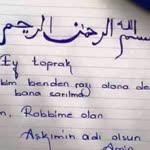 بسم الله الرحمن الرحيم
Ey toprak
bim benden razı olana de
bana sarılma
n, Rabbime olan
Aşkımın adı olsun
Amin